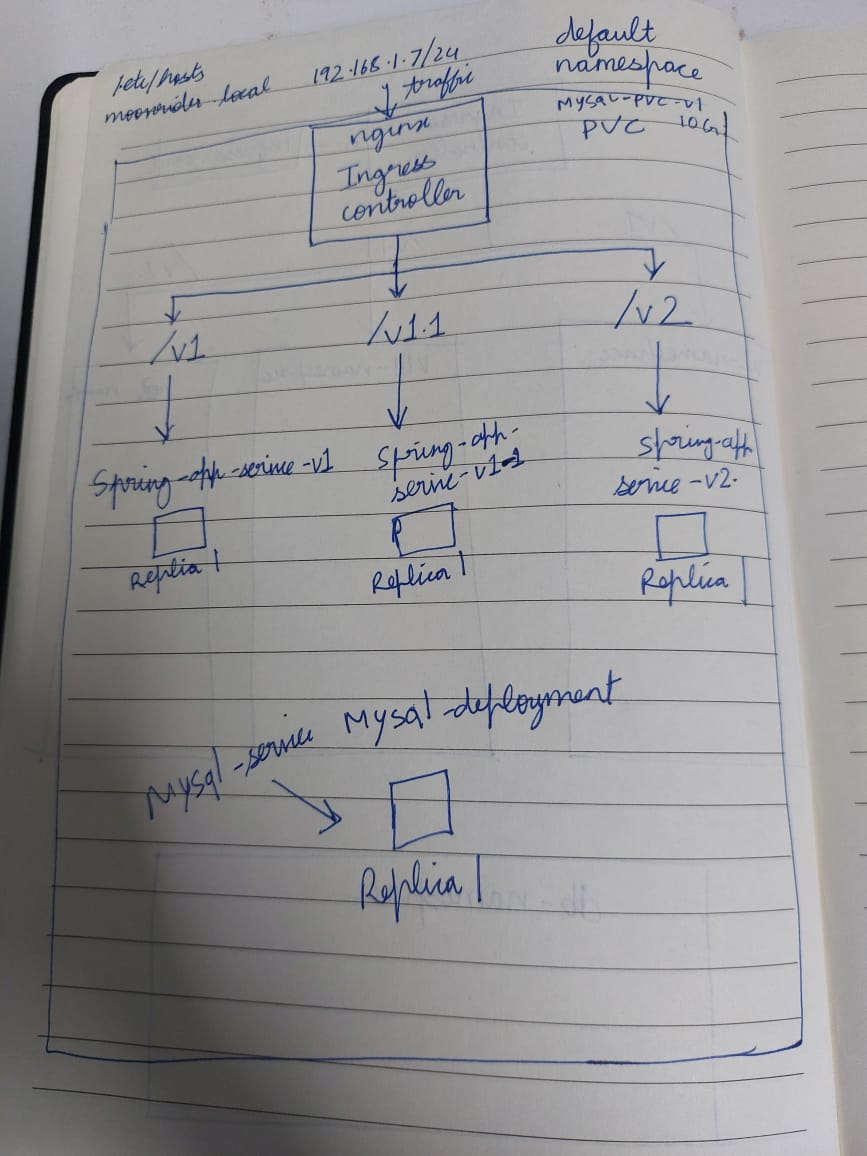 /etc/hosts
moonrider.local
192.168.1.7/24
traffic
default
namespace
Mysql-PVC-v1
PVC 10Gi
nginx
Ingress
controller
/v1
/v1.1
/v2
Spring-app-service-v1
Spring-app-
service-v1-1
Spring-app
service-v2.
Replica 1
Replica 1
Replica 1
Mysql-service
Mysql-deployment
Replica 1